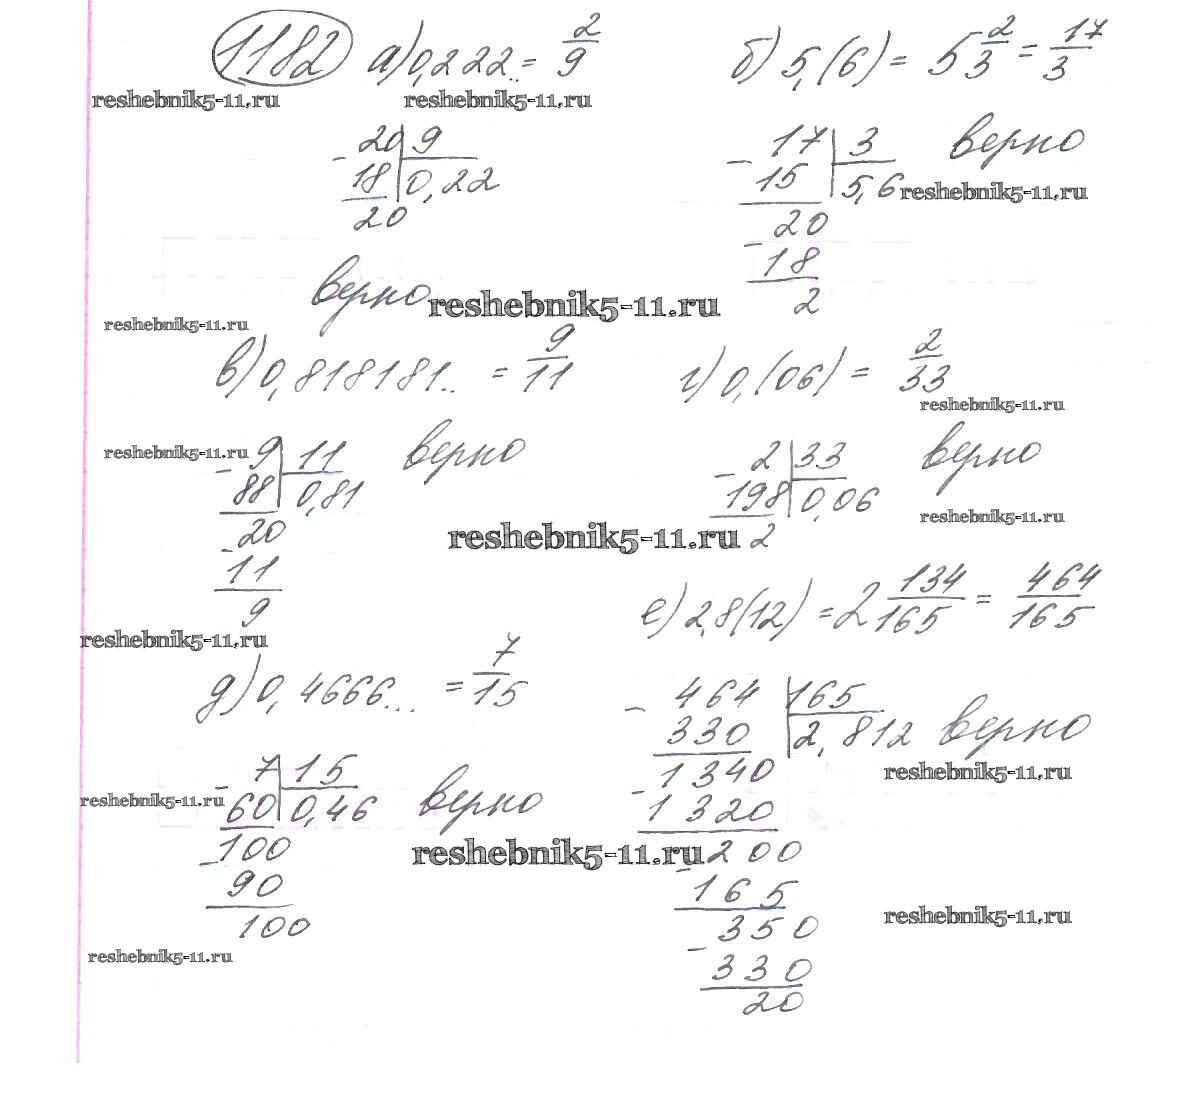 1182 а) 0,222.. = 2/9
reshebnik5-11.ru reshebnik5-11.ru
- 20 | 9
18 | 0,22
20
верно
reshebnik5-11.ru
reshebnik5-11.ru
б) 5,(6) = 5 2/3 = 17/3
- 17 | 3 верно
15 | 5,6 reshebnik5-11.ru
- 20
18
2
в) 0,818181.. = 9/11
reshebnik5-11.ru
- 9 | 11 верно
88 | 0,81
- 20
11
9
reshebnik5-11.ru
г) 0,(06) = 2/33
reshebnik5-11.ru
- 2 | 33 верно
198 | 0,06
reshebnik5-11.ru
reshebnik5-11.ru 2
д) 0,4666... = 7/15
- 7 | 15
reshebnik5-11.ru 60 | 0,46 верно
- 100
90
100
reshebnik5-11.ru
reshebnik5-11.ru
е) 2,8(12) = 2 134/165 = 464/165
- 464 | 165
330 | 2,812 верно
reshebnik5-11.ru
- 1340
1320
- 200
165
reshebnik5-11.ru
- 350
330
20